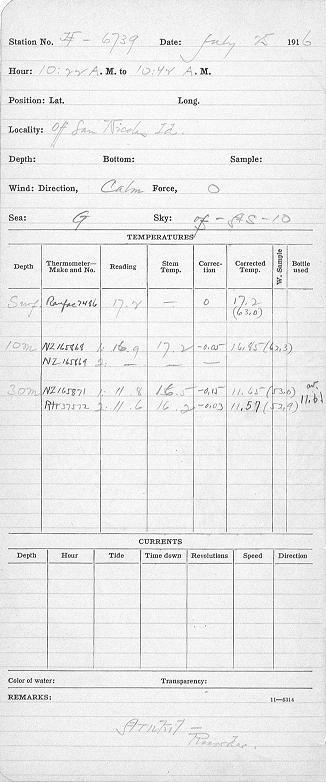 Station No. II - 6739 Date: July 25 1916
Hour: 10:22 A. M. to 10:42 A. M.
Position: Lat. Long.
Locality: of San Nicolas Id.
Depth: Bottom: Sample:
Wind: Direction, Calm Force, 0
Sea: G Sky: of - AS - 10
TEMPERATURES
Depth Thermometer— Make and No. Reading Stem Temp. Correction Corrected Temp. W. Sample Bottle used
Surf 7486 17.2 — 0 17.2
(63.0)
10m NZ165869 1: 16.9 17.2 -0.05 16.85 (62.3)
NZ165869 2: — — —
30m NZ165871 1: 11.8 16.5 -0.15 11.65 (53.0) av.
RH37572 2: 11.6 16.2 -0.03 11.57 (52.9) 11.61
CURRENTS
Depth Hour Tide Time down Revolutions Speed Direction
Color of water: Transparency:
REMARKS: 11—5314
Recorder.